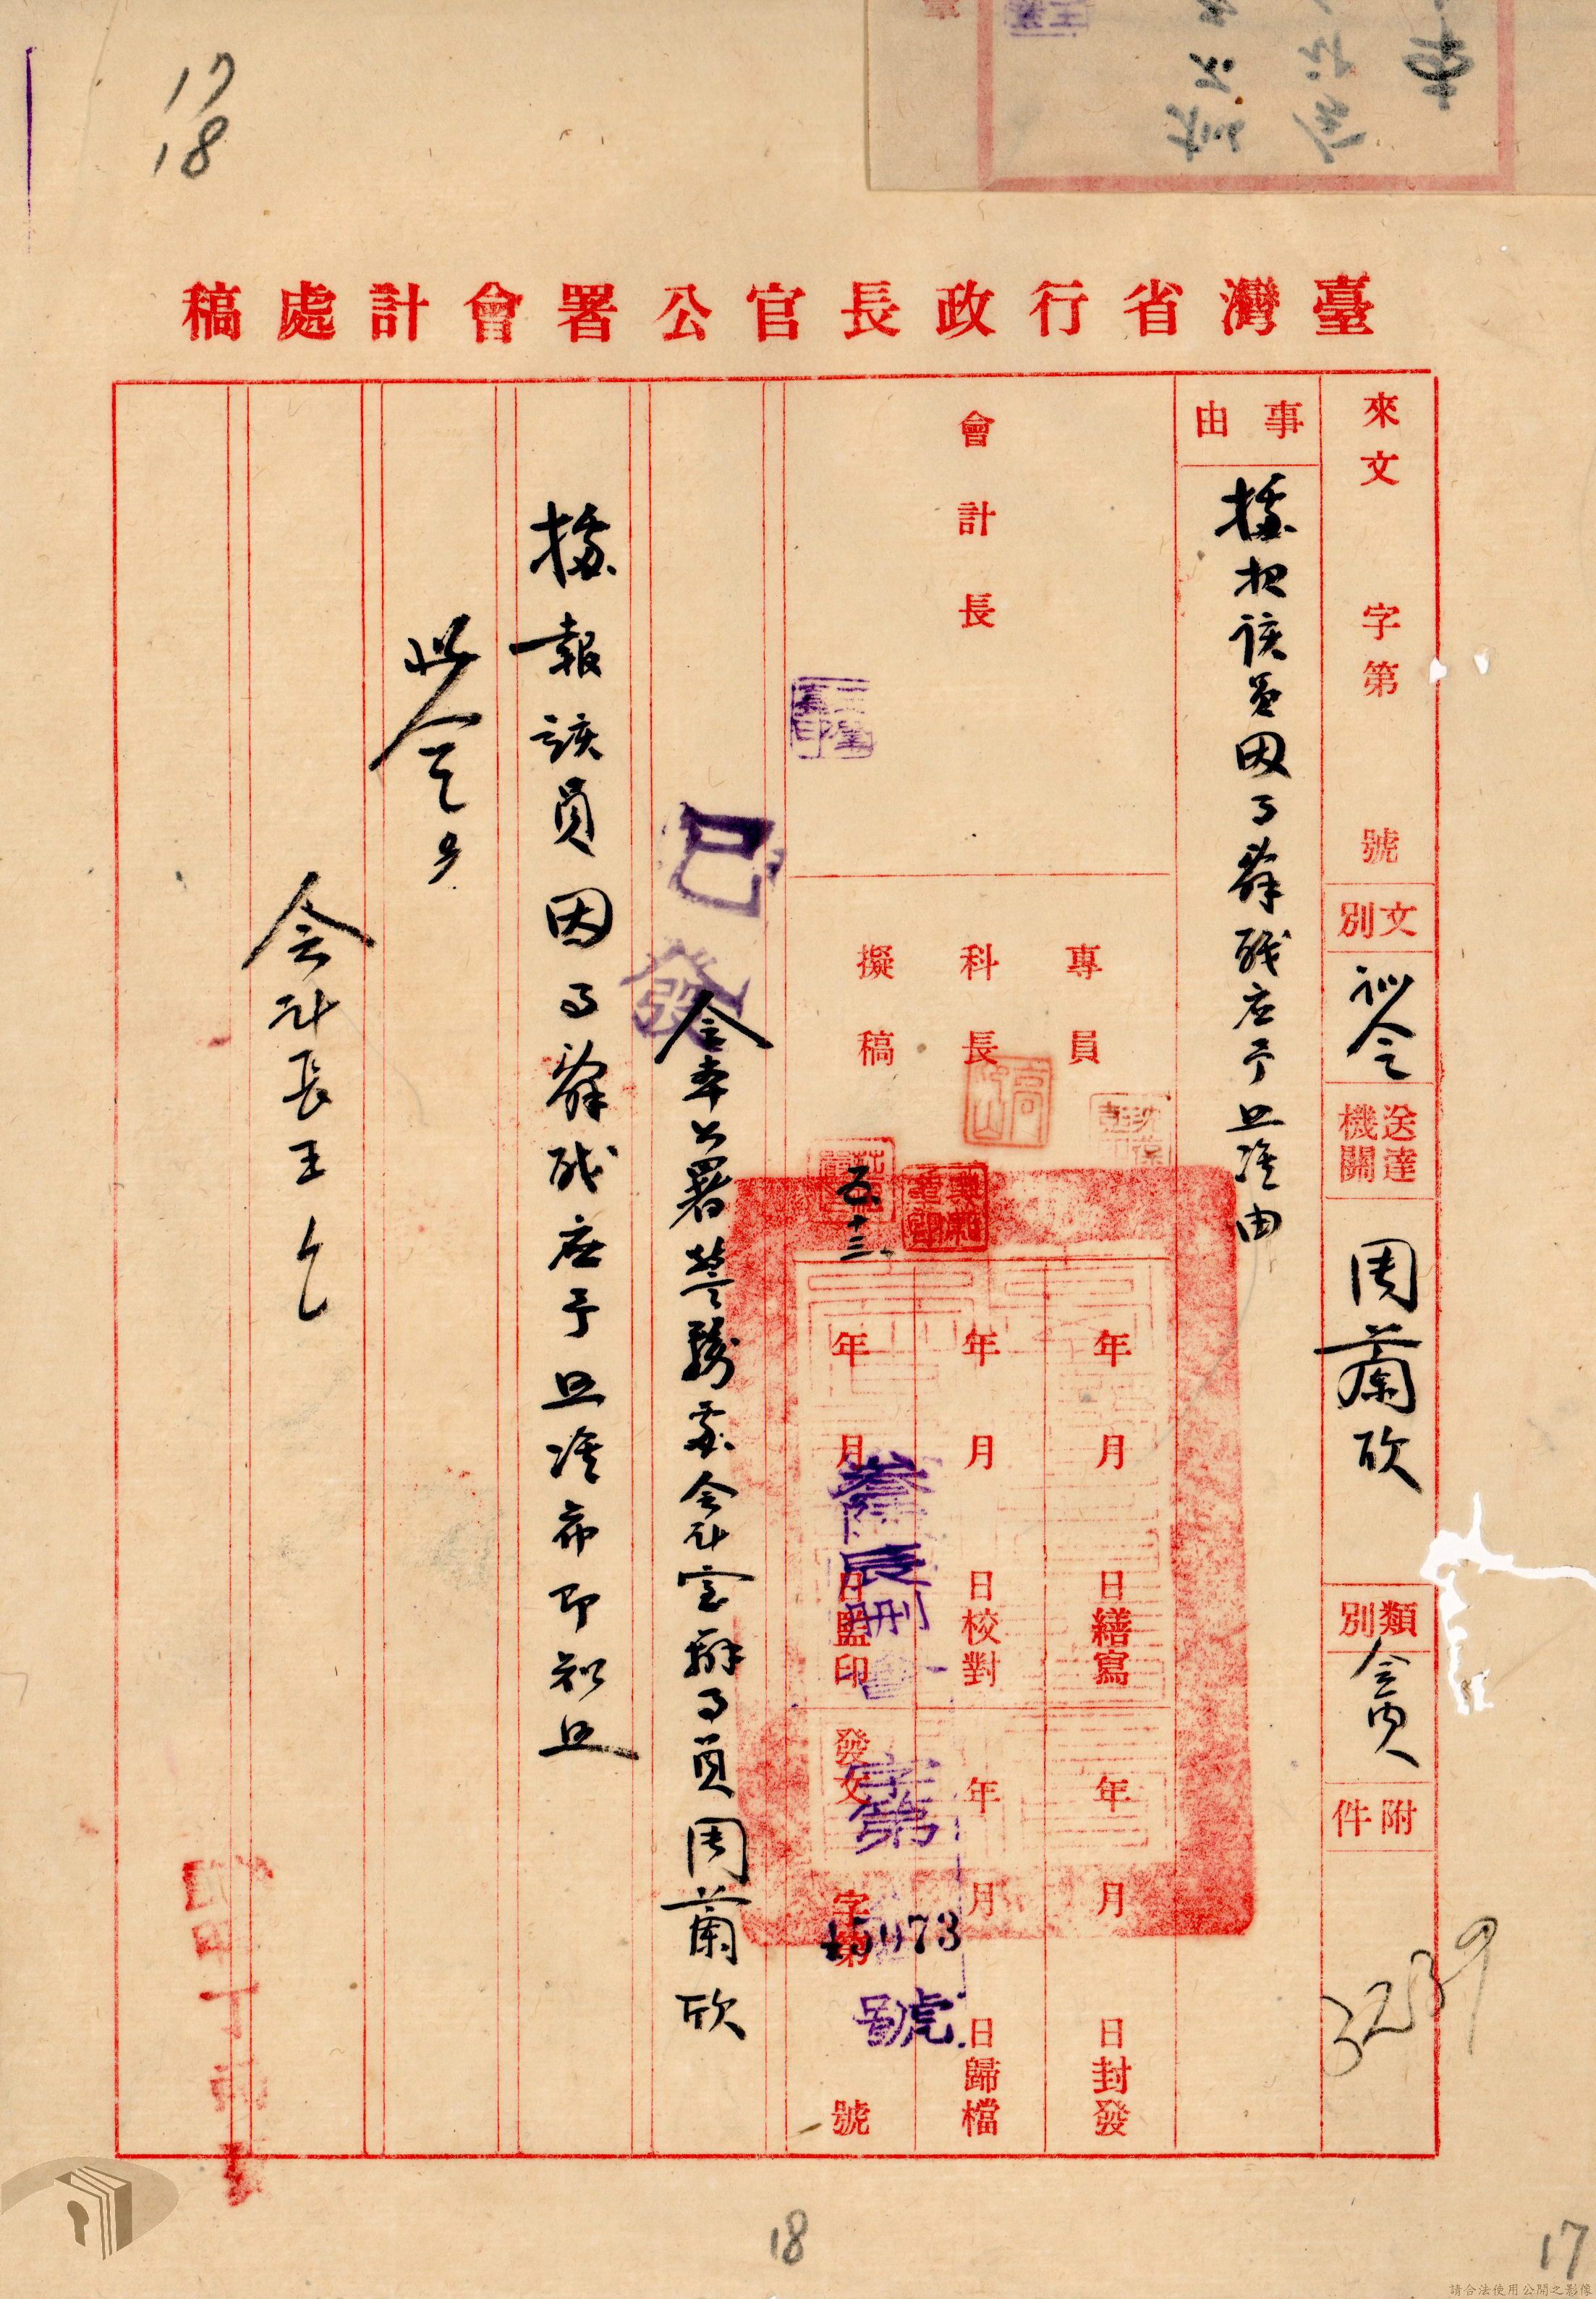 17
18
臺灣省行政長官公署會計處稿
來文 字第 號
文別 訓令
送達機關 周蘭欣
類別 會內人
附件
3239
事由 據報該員因事辭職應予照准由
會計長
專員
科長
擬稿 五、十三、
年 月 日繕寫
年 月 日校對
年 月 日監印
年 月 日封發
年 月 日歸檔
發文 字第 號
字第
15973
號
已發
令本公署警務處會計室辦事員周蘭欣
據報該員因事辭職應予照准希即知照
此令
會計長王
18
17
請合法使用公開之影像